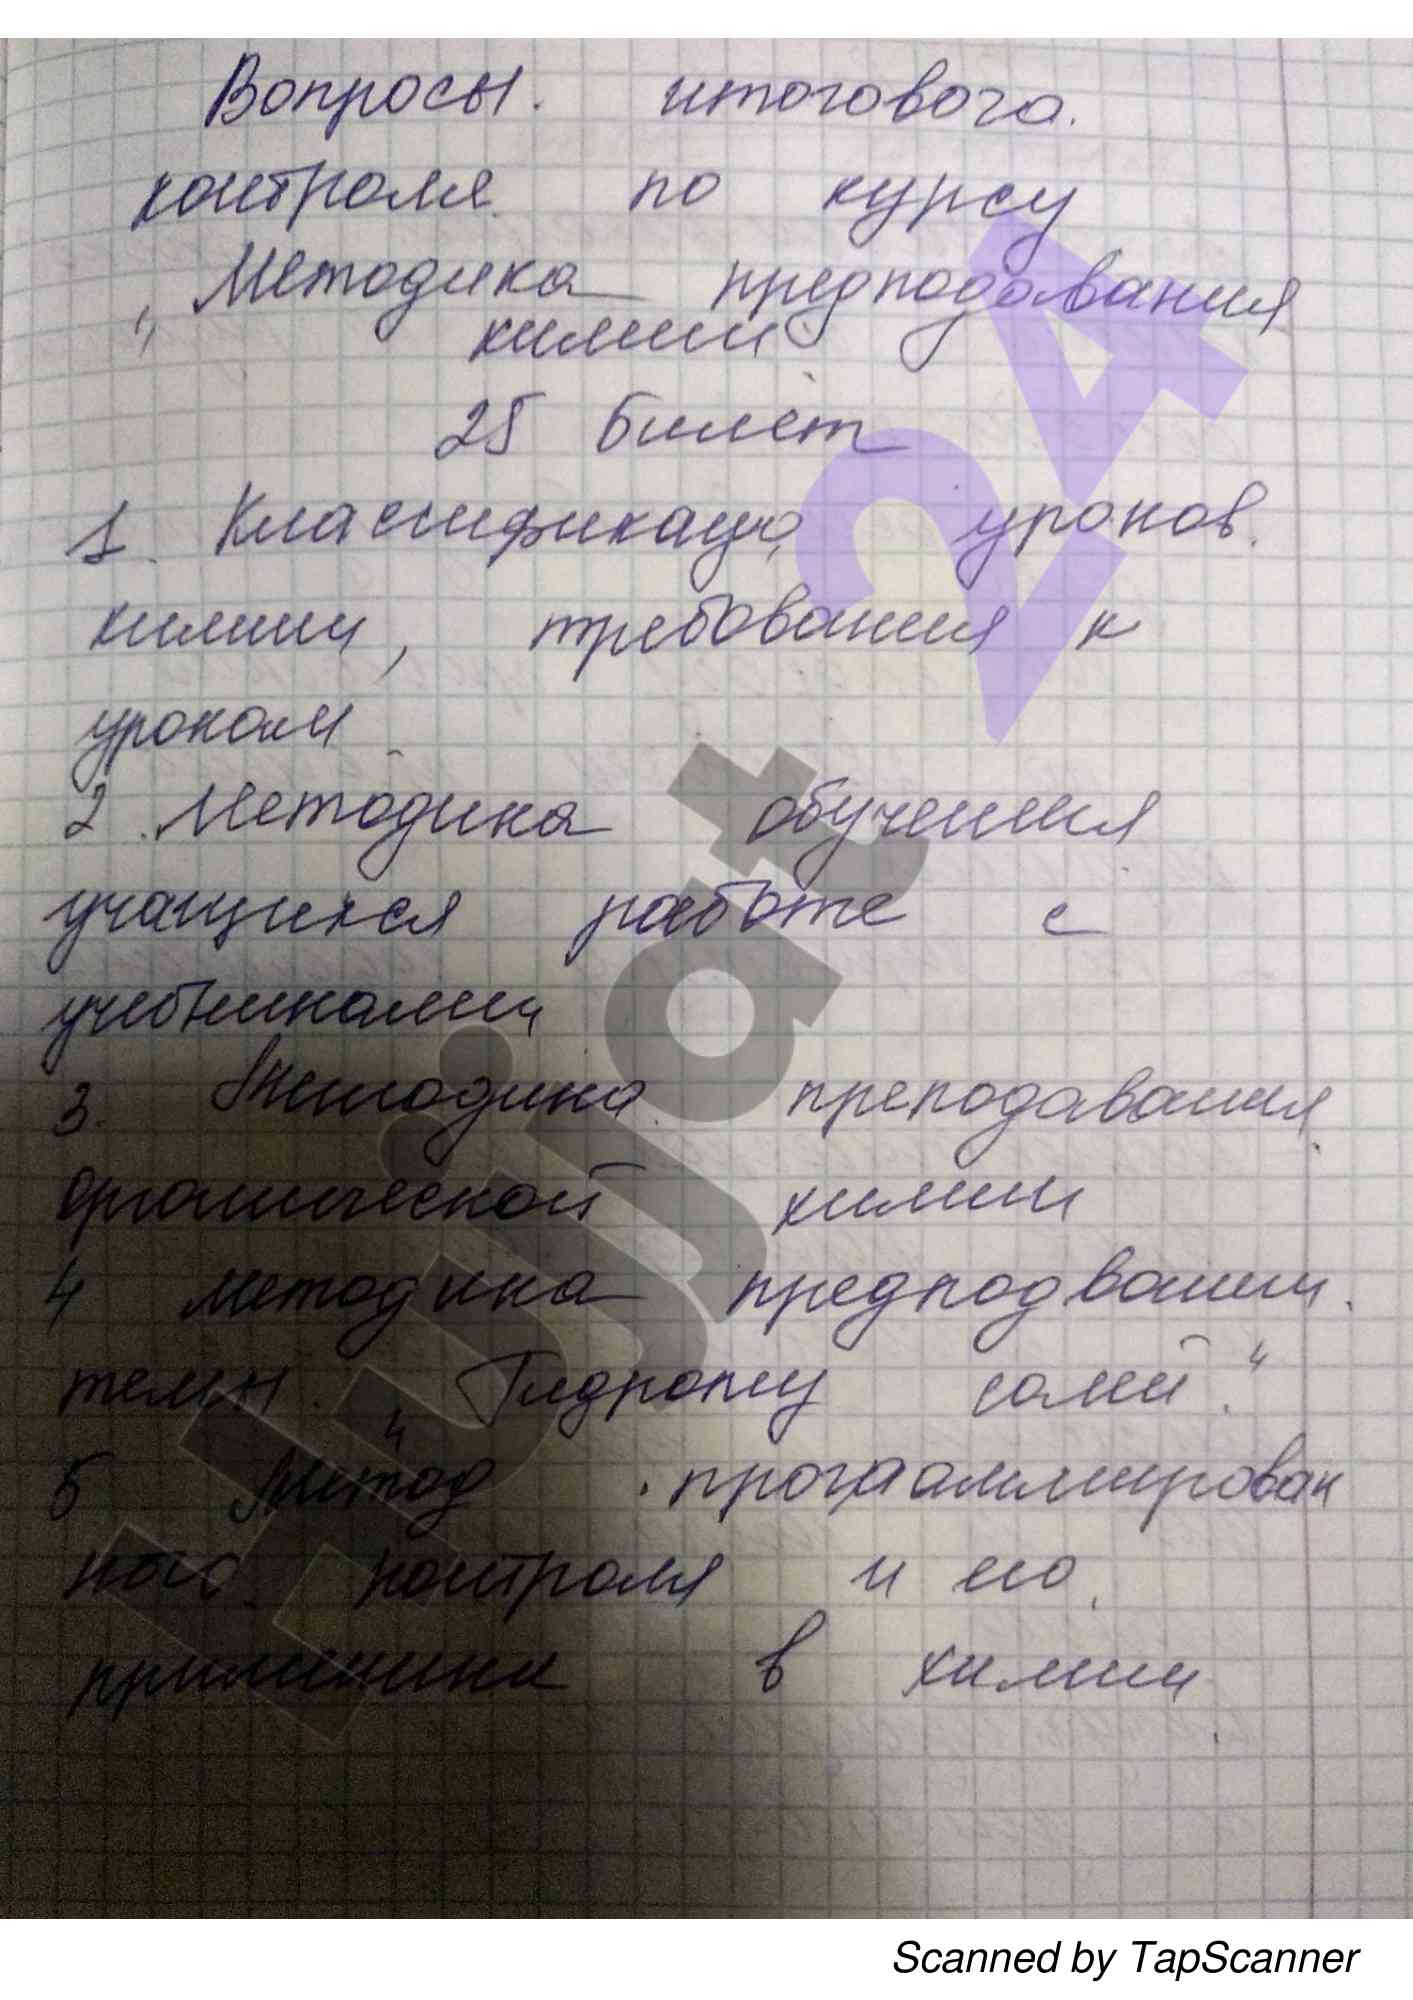 Вопросы. итогового.
контроля по курсу
„Методика предподавания
химии
25 билет
1. Классификация уроков.
химии, требования к
урокам
2. Методика обучения
учащихся работе с
учебниками
3. Методика преподавания
органической химии
4 методика предподвании.
темы. „Гидролиу солей."
5 Метод программирован
ного контроля и его.
прпименика в химии
Hujjat 24
Scanned by TapScanner